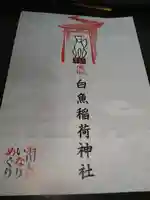 白魚稲荷神社
いなり
めぐり